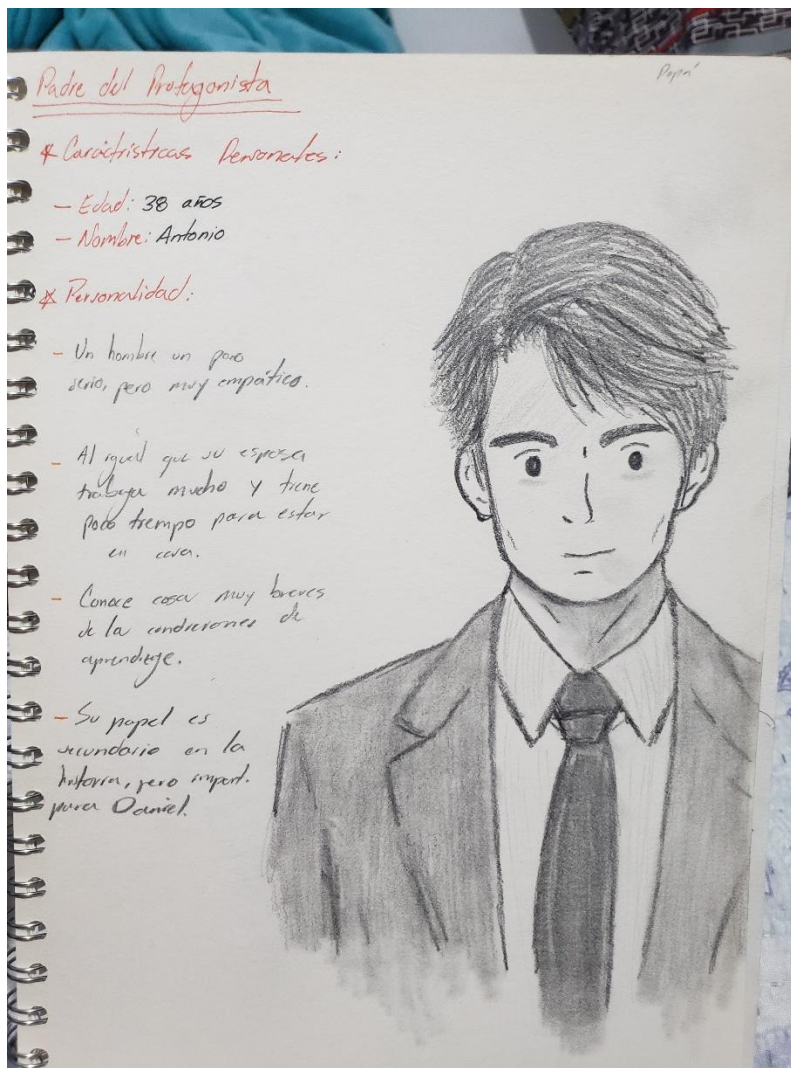 Papá
Padre del Protagonista
* Caractrísticas Personales:
- Edad: 38 años
- Nombre: Antonio
* Personalidad:
- Un hombre un poco
serio, pero muy empático.
- Al igual que su esposa
trabaja mucho y tiene
poco tiempo para estar
en casa.
- Conoce cosas muy breves
de la condiciones de
aprendizaje.
- Su papel es
secundario en la
historia, pero import.
para Daniel.